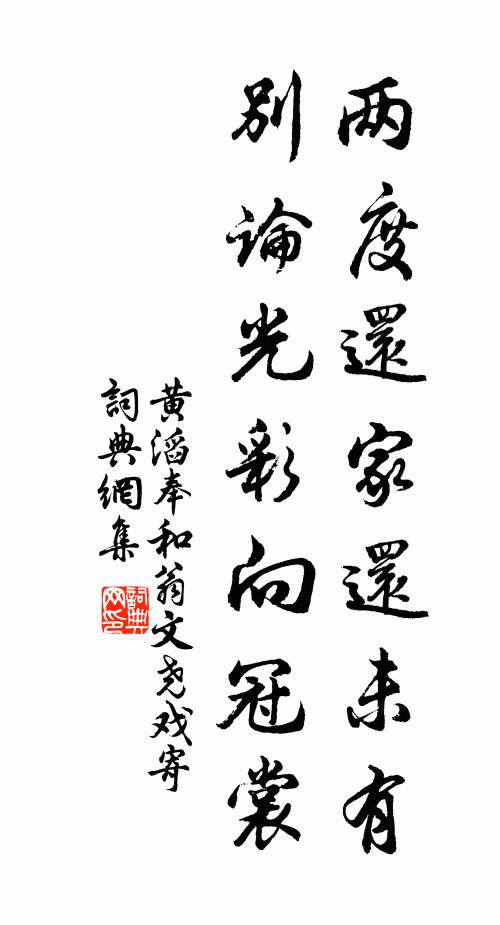 两度還家還未有
別論光彩向冠裳
黄滔奉和翁文尧戏寄
詞典網集
詞典网印